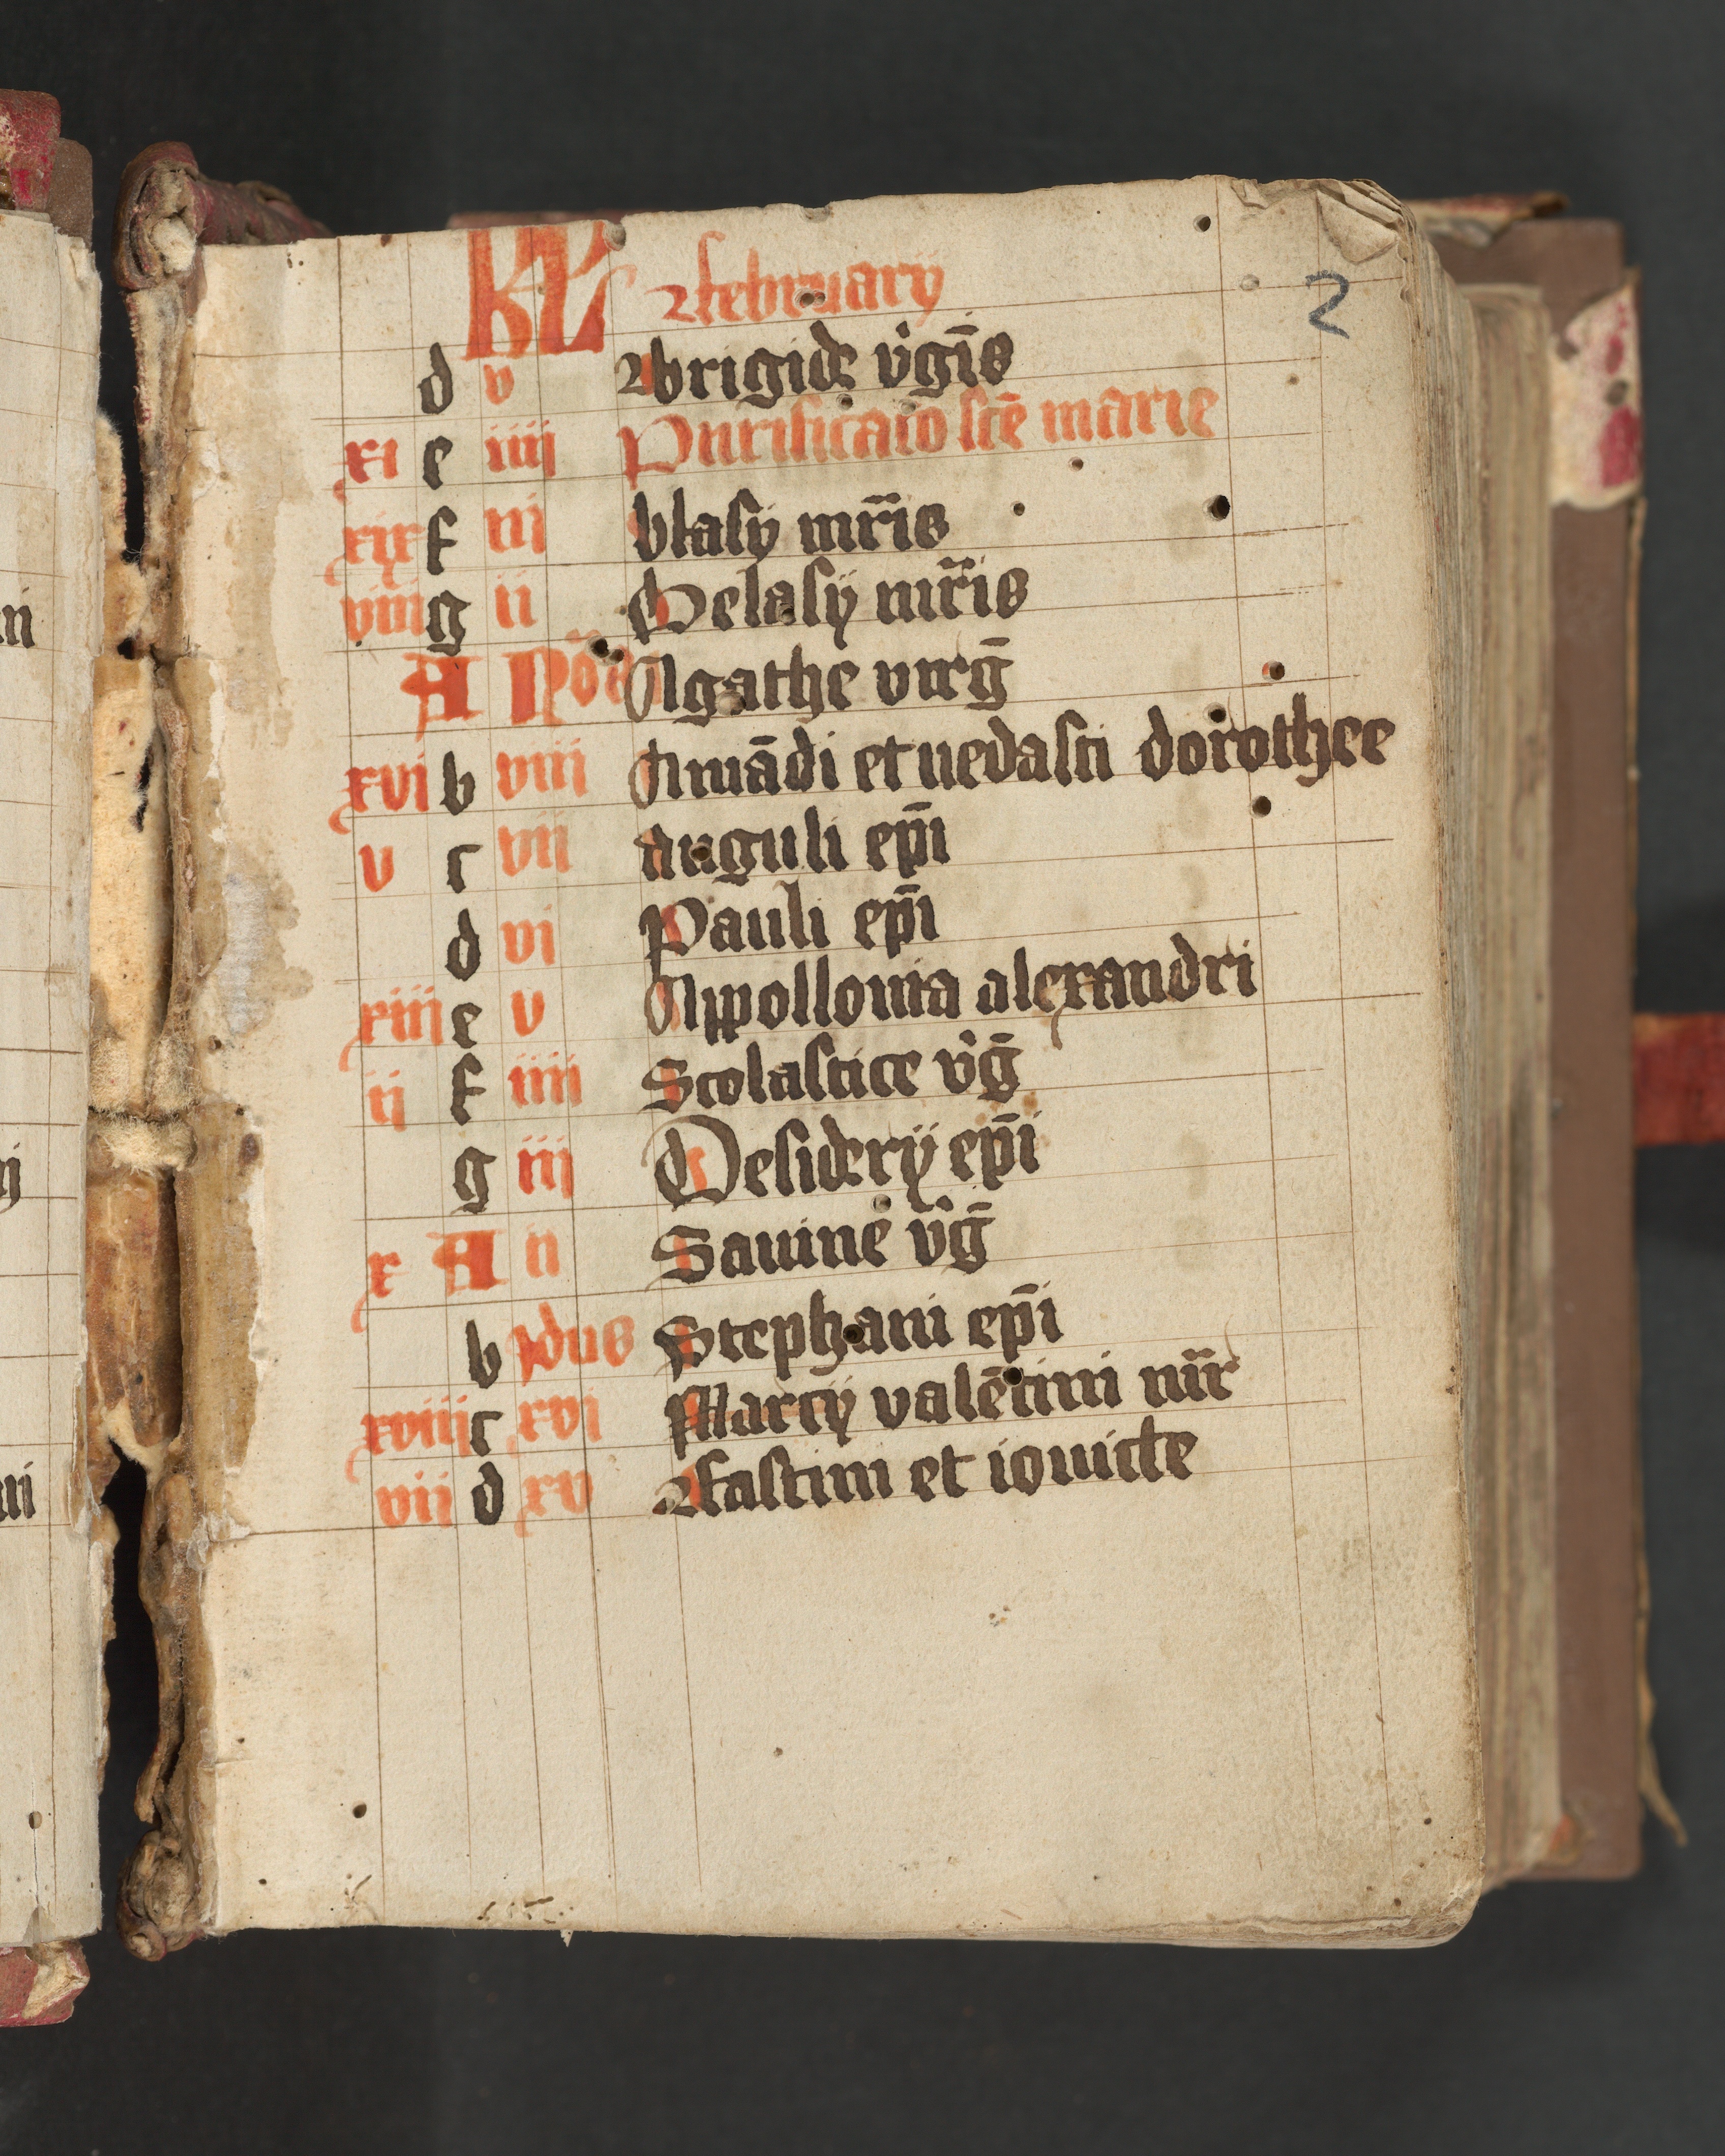 KL februarij
2
d v brigide v̉gīs
xi e iiij Purificaio scē marie
xix f iij blasij mr̄is
viii g ii Gelasij mr̄is
A No᷒ Agathe virḡ
xvi b viii Amādi et uedasti dorothee
v c vii auguli ep̄i
d vi Pauli ep̄i
xiij e v Appollonia alexandri
ij f iiii Scolastice v̉ḡ
g iij Desiderij ep̄i
x A ii Sauine v̉ḡ
b ydus Stephani ep̄i
xviij c xvi Marcij valētini mr̄
vii d xv fastini et iouicte